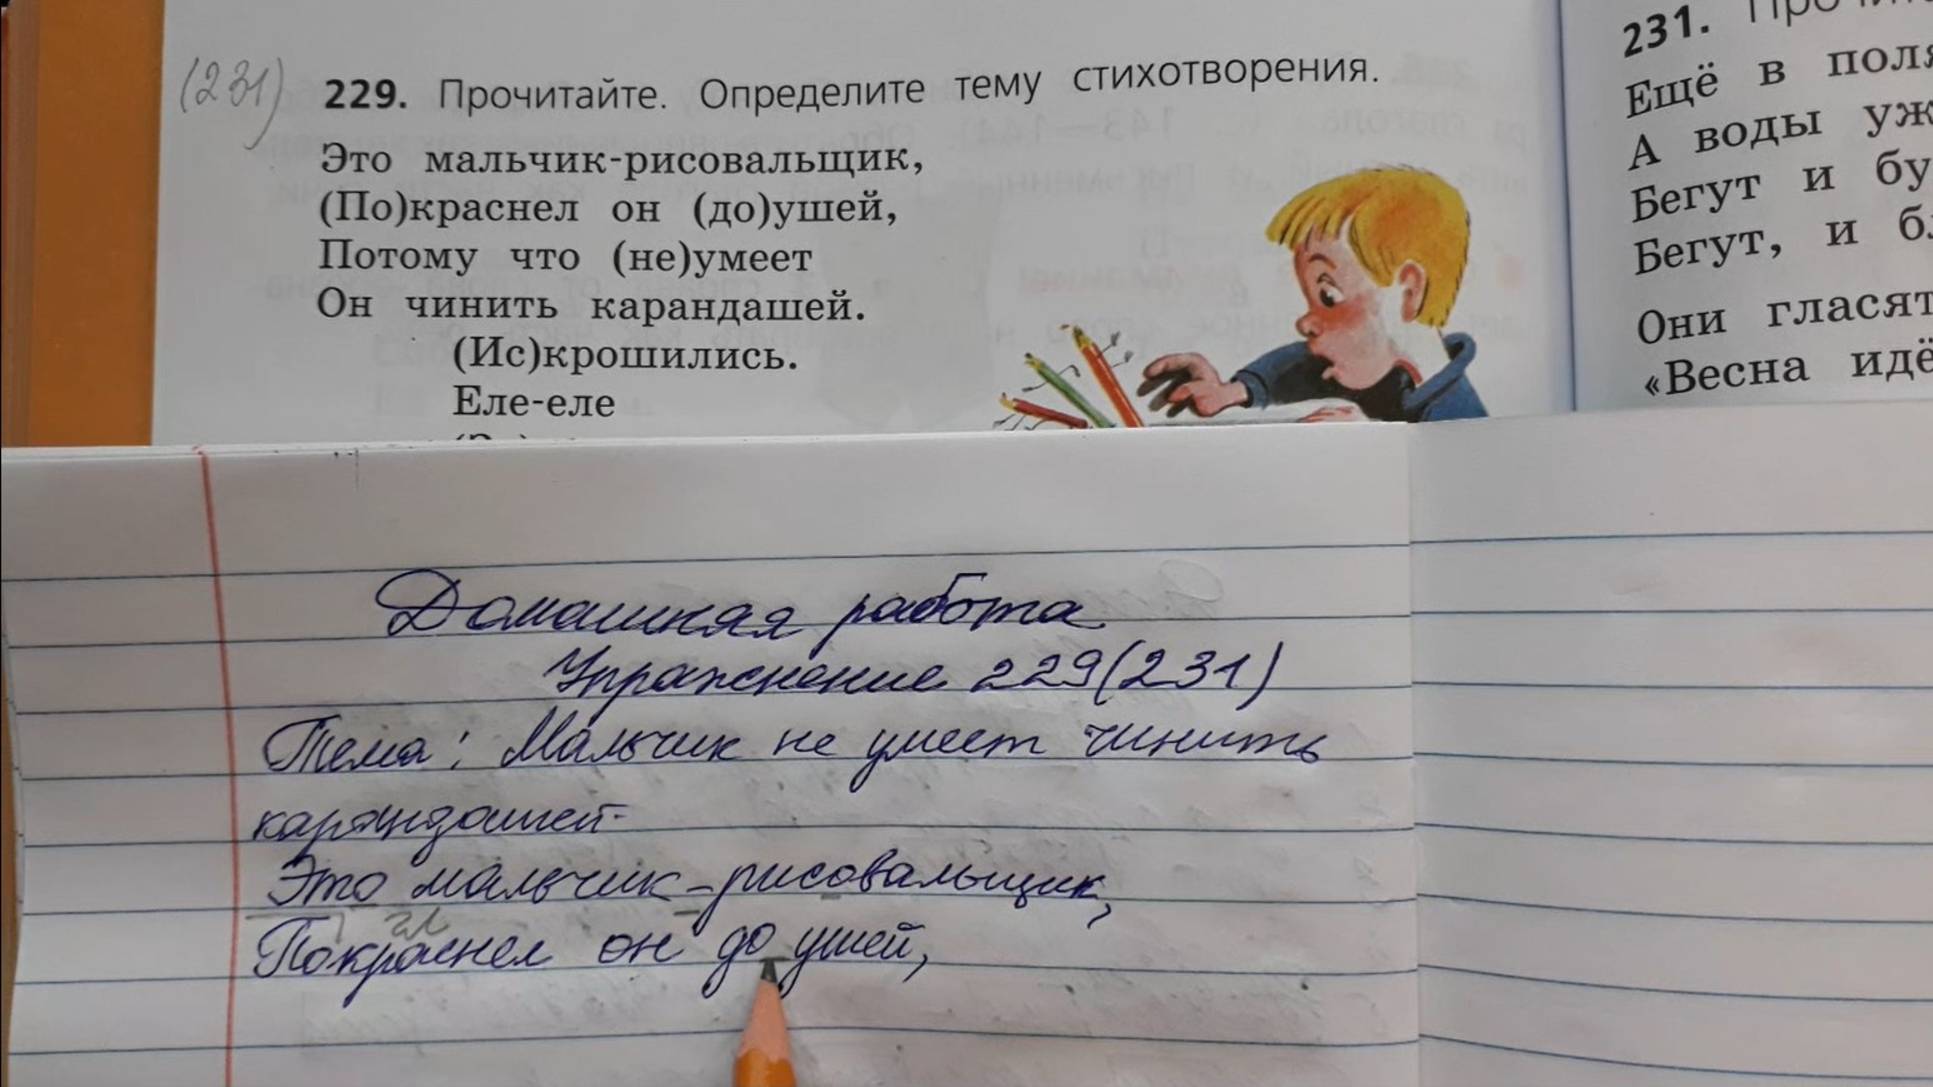 (231) 229. Прочитайте. Определите тему стихотворения.
Это мальчик-рисовальщик,
(По)краснел он (до)ушей,
Потому что (не)умеет
Он чинить карандашей.
(Ис)крошились.
Еле-еле
231.
Ещё в
А воды
Бегут и
Бегут, и
Они
«Весна
Домашняя работа
Упражнение 229(231)
Тема: Мальчик не умеет чинить
карандашей.
Это мальчик-рисовальщик,
гл
Покраснел он до ушей,